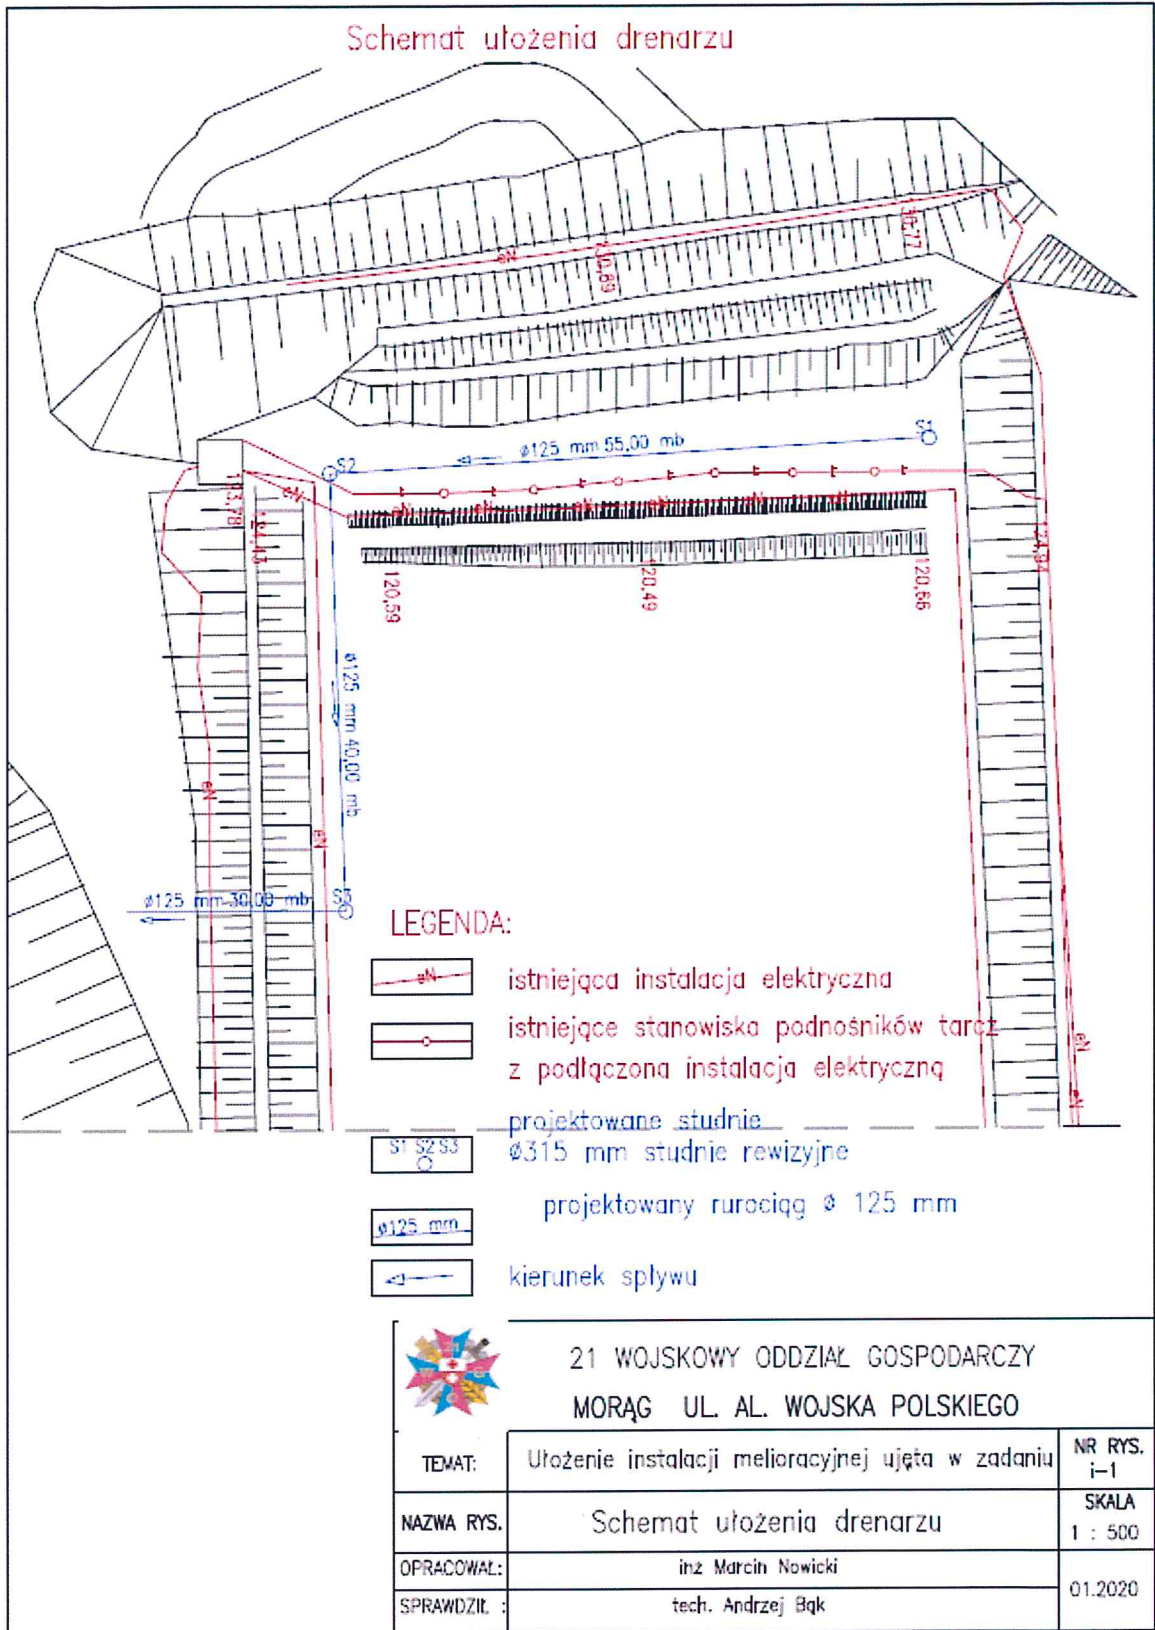 Schemat ułożenia drenarzu
eN
130,89
130,77
S1
ø125 mm 55,00 mb
S2
t t t t t t
eN eN eN eN eN eN
124,43
124,94
120,59
120,49
120,66
ø125 mm 40,00 mb
eN
eN
ø125 mm 30,00 mb
S3
LEGENDA:
eN
istniejąca instalacja elektryczna
istniejące stanowiska podnośników tarcz
z podłączona instalacja elektryczną
projektowane studnie
S1 S2 S3
Ø315 mm studnie rewizyjne
projektowany rurociąg Ø 125 mm
ø125 mm
kierunek spływu
eN
eN
21 WOJSKOWY ODDZIAŁ GOSPODARCZY
MORĄG UL. AL. WOJSKA POLSKIEGO
TEMAT:
Ułożenie instalacji melioracyjnej ujęta w zadaniu
NR RYS.
i-1
NAZWA RYS.
Schemat ułożenia drenarzu
SKALA
1 : 500
OPRACOWAŁ:
inż Marcin Nowicki
01.2020
SPRAWDZIŁ :
tech. Andrzej Bąk